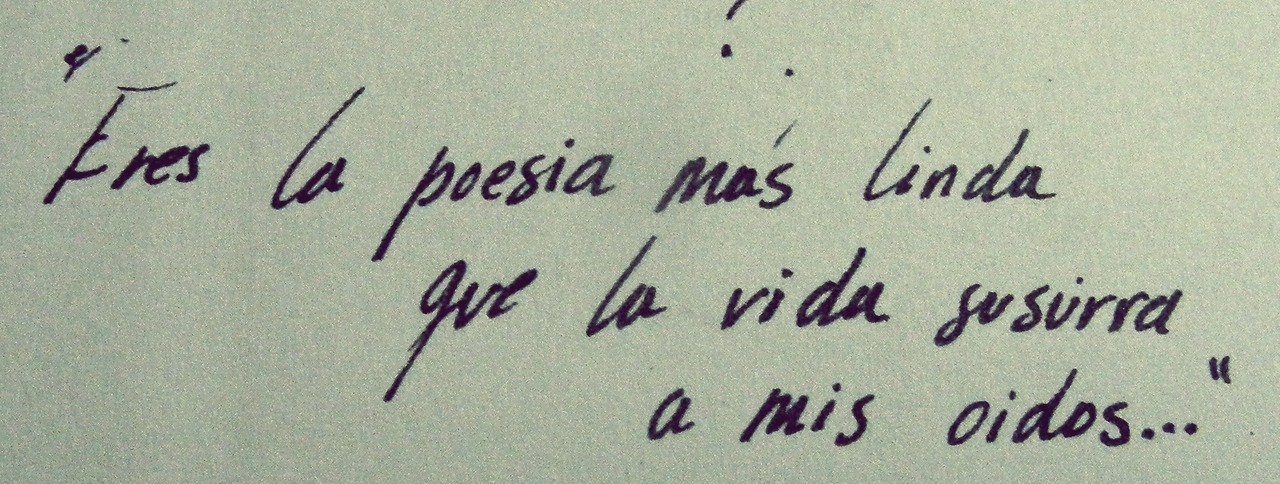 "Eres la poesia más linda
que la vida susurra
a mis oidos..."